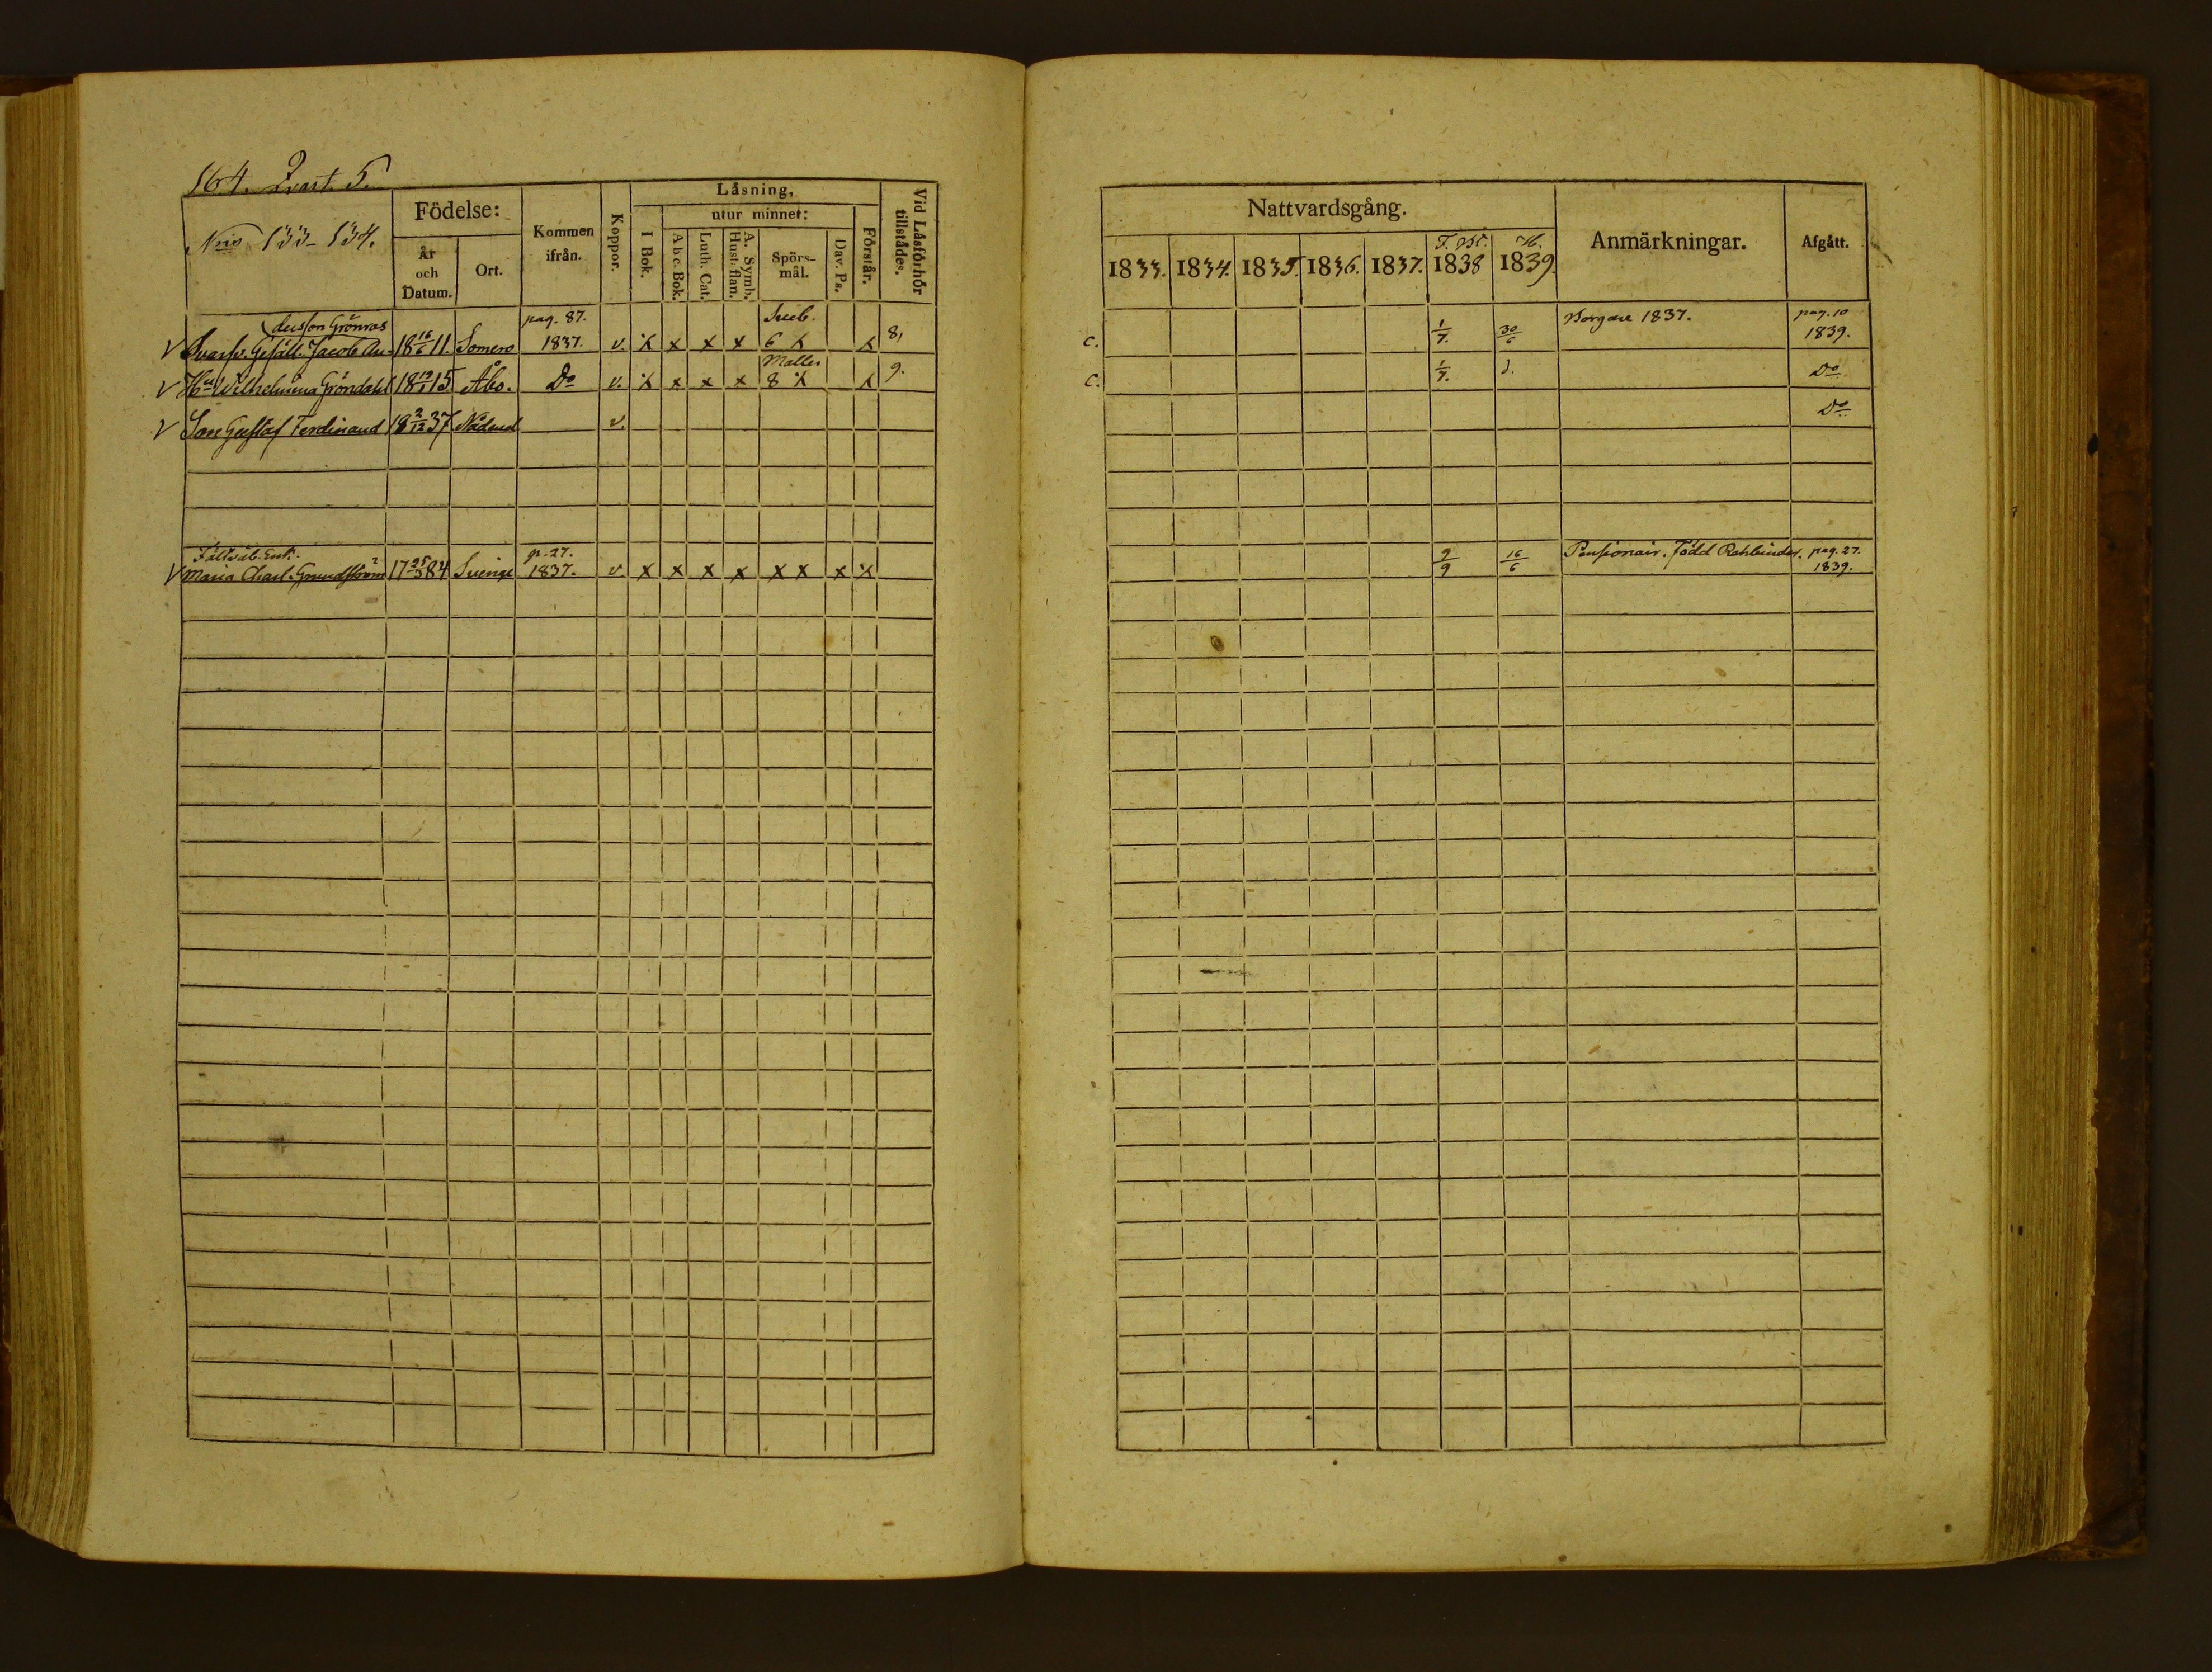 164. Qvart. 5.
Nris 133-134.
Födelse:
År och Datum.
Ort.
Kommen ifrån.
Koppor.
Läsning,
utur minnet:
I Bok.
Abc. Bok.
Luth. Cat.
A. Symb. Hust. flan.
Spörs-mål.
Dav. Ps.
Förstår.
Vid Läsförhör tillstädes.
dersson Grönros pag. 87. Sveb.
V Svarfv. Gesäll. Jacob An- 18 16/6 11. Somero 1837. v. x x x x 6 x x 8,
Malleri
V Hu Wilhelmina Gröndahl 18 19/1 15 Åbo. Do v. x x x x 8 x x 9.
V Son Gustaf Ferdinand 18 2/12 37 Nådend v.
Fältväb. Enk. p. 27.
V Maria Charl. Grundström 17 25/3 84 Sverige 1837. v x x x x x x x x
Nattvardsgång.
Anmärkningar.
Afgått.
1833. 1834. 1835. 1836. 1837. 1838 1839.
Borgare 1837. pag. 10
C. 1/7. 30/6 1839.
C. 1/7. d. Do
Do
9/9 16/6 Pensionair. Född Rehbinder. pag. 27.
1839.